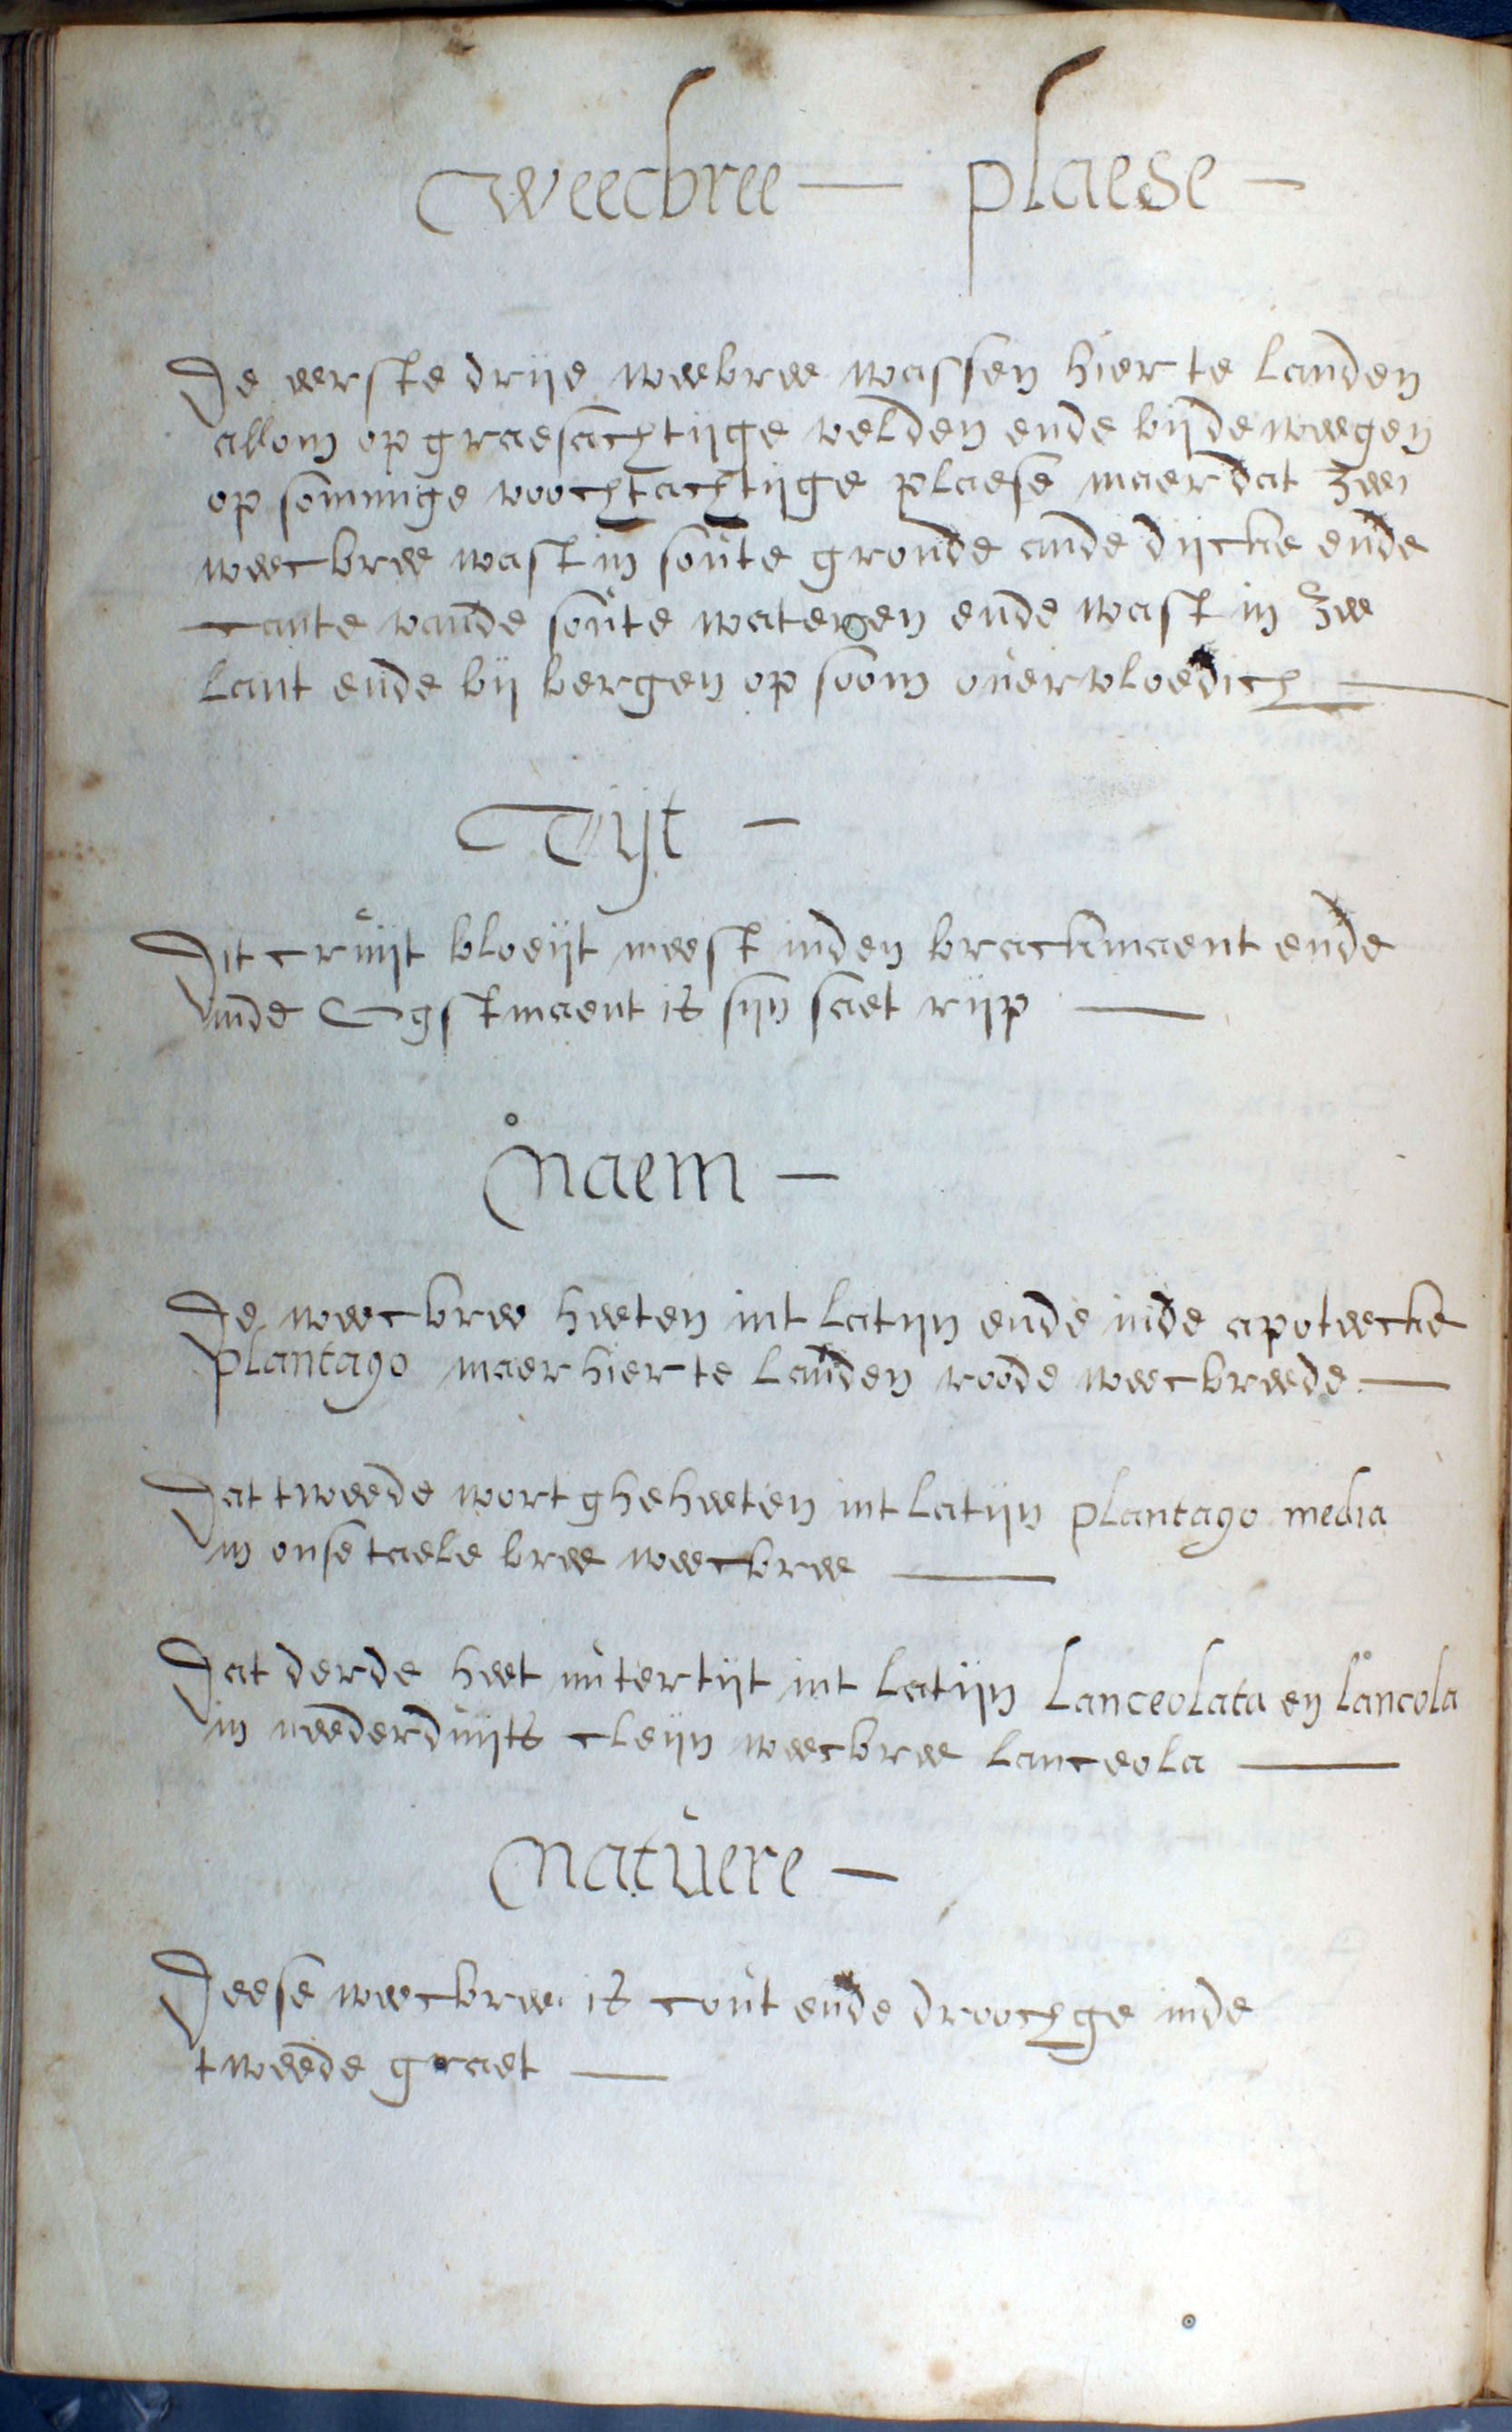 weecbree — plaese —
De eerste drije weebree wassen hier te landen
allom op graesachtijge velden ende bij de weegen
op sommige voochtachtijge plaese maer dat zee
weecbree wast in soute gronde ande dijcke ende
cante vande soute wateren ende wast in zee
lant ende bij bergen op soom overvloedich —
Tijt —
Dit cruijt bloeijt meest inden brackmaent ende
inde Ogstmaent is sijn saet rijp —
naem —
De weecbree heeten int latijn ende inde apoteecke
plantago maer hier te landen roode weecbreede —
Dat tweede wort gheheeten int latijn plantago media
in onse taele bree weecbree —
Dat derde heet tuter tijt int latijn Lanceolata en lancola
in needer duijts cleijn weecbree lanceola —
natuere —
Deese weecbree is cout ende droochge inde
tweede graet —